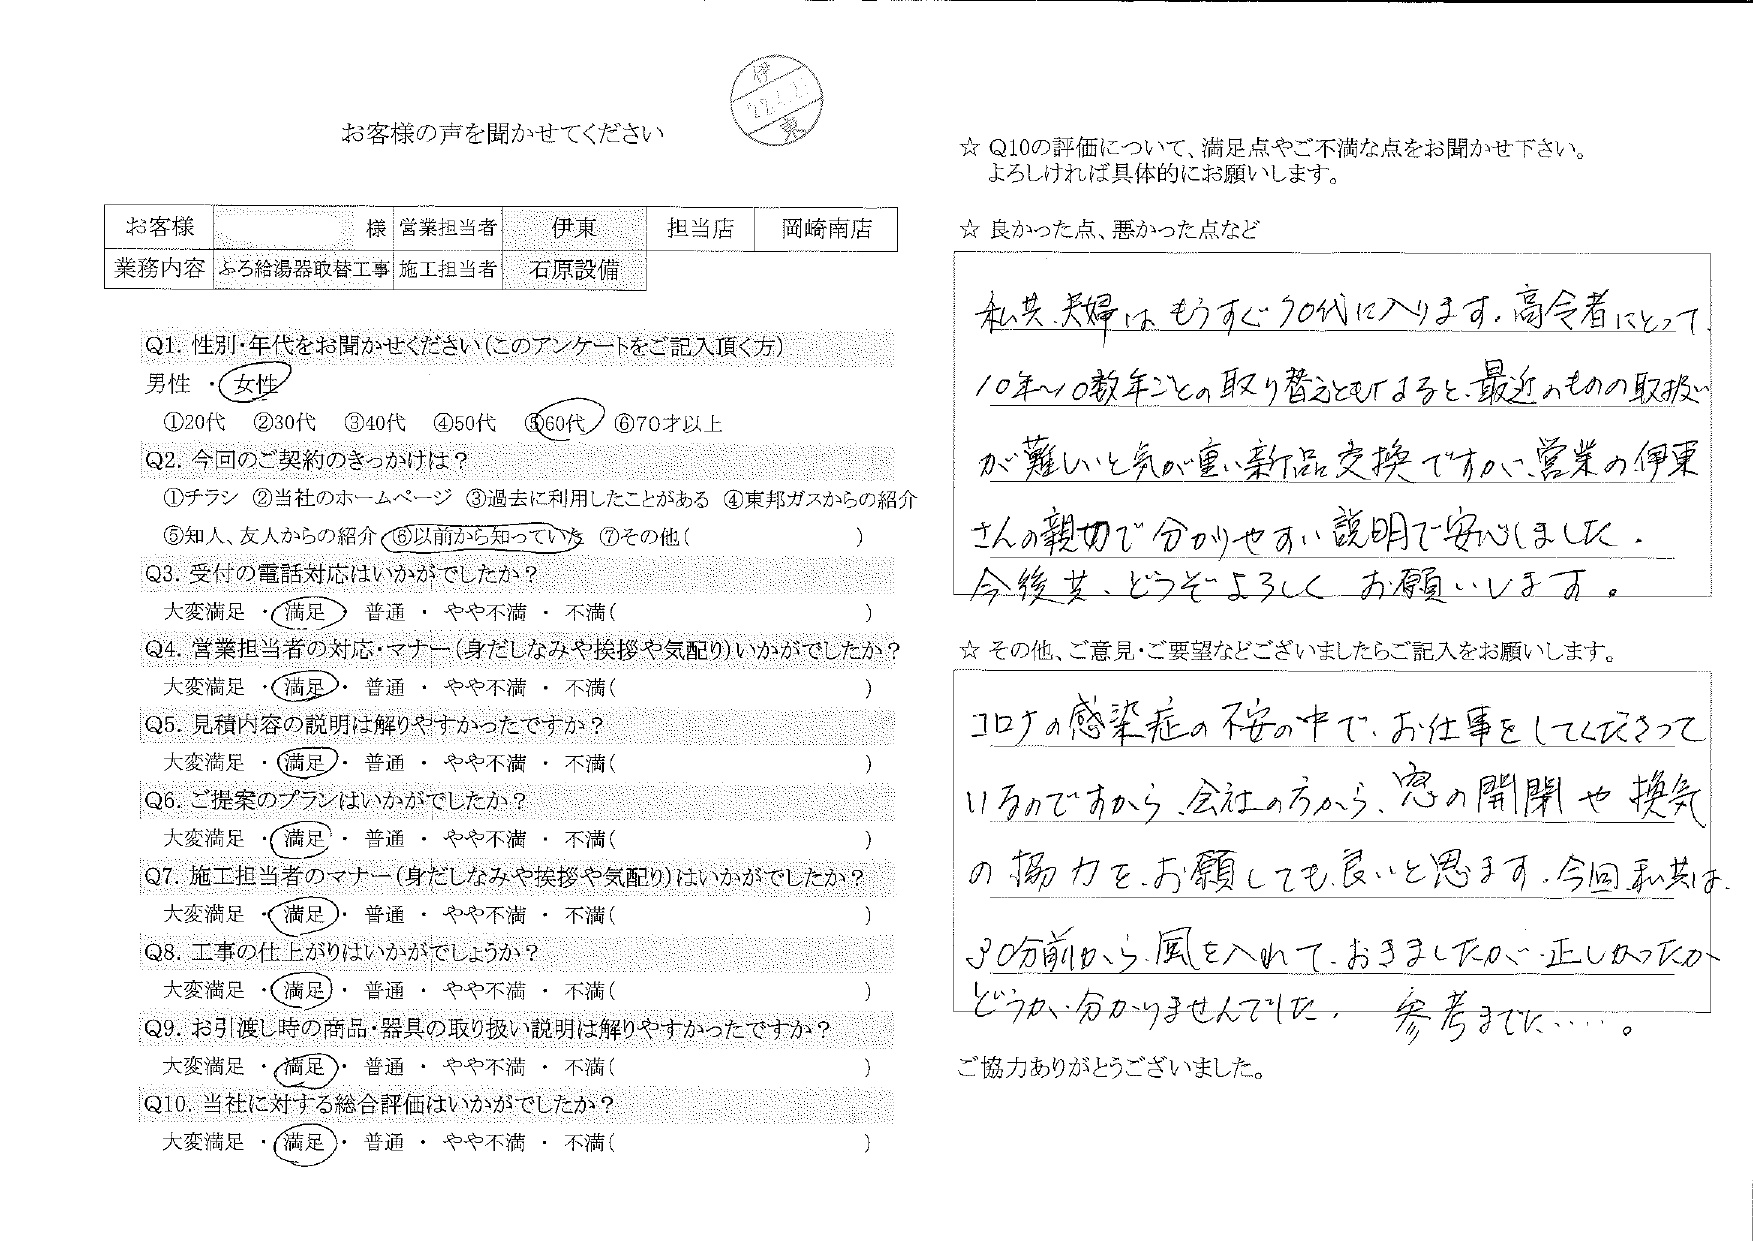 伊
東
お客様の声を聞かせてください
お客様 様 営業担当者 伊東 担当店 岡崎南店
業務内容 ふろ給湯器取替工事 施工担当者 石原設備
Q1. 性別・年代をお聞かせください(このアンケートをご記入頂く方)
男性 ・ 女性
①20代 ②30代 ③40代 ④50代 ⑤60代 ⑥70才以上
Q2. 今回のご契約のきっかけは?
①チラシ ②当社のホームページ ③過去に利用したことがある ④東邦ガスからの紹介
⑤知人、友人からの紹介 ⑥以前から知っていた ⑦その他( )
Q3. 受付の電話対応はいかがでしたか?
大変満足 ・ 満足 ・ 普通 ・ やや不満 ・ 不満( )
Q4. 営業担当者の対応・マナー(身だしなみや挨拶や気配り)いかがでしたか?
大変満足 ・ 満足 ・ 普通 ・ やや不満 ・ 不満( )
Q5. 見積内容の説明は解りやすかったですか?
大変満足 ・ 満足 ・ 普通 ・ やや不満 ・ 不満( )
Q6. ご提案のプランはいかがでしたか?
大変満足 ・ 満足 ・ 普通 ・ やや不満 ・ 不満( )
Q7. 施工担当者のマナー(身だしなみや挨拶や気配り)はいかがでしたか?
大変満足 ・ 満足 ・ 普通 ・ やや不満 ・ 不満( )
Q8. 工事の仕上がりはいかがでしょうか?
大変満足 ・ 満足 ・ 普通 ・ やや不満 ・ 不満( )
Q9. お引渡し時の商品・器具の取り扱い説明は解りやすかったですか?
大変満足 ・ 満足 ・ 普通 ・ やや不満 ・ 不満( )
Q10. 当社に対する総合評価はいかがでしたか?
大変満足 ・ 満足 ・ 普通 ・ やや不満 ・ 不満( )
☆ Q10の評価について、満足点やご不満な点をお聞かせ下さい。
よろしければ具体的にお願いします。
☆ 良かった点、悪かった点など
私共、夫婦は もうすぐ70代に入ります。高令者にとって、
10年~10数年ごとの取り替えともなると、最近のものの取扱い
が難しいと気が重い新品交換ですが、営業の伊東
さんの親切で分かりやすい説明で安心しました。
今後共、どうぞよろしく お願いいします。
☆ その他、ご意見・ご要望などございましたらご記入をお願いします。
コロナの感染症の不安の中で、お仕事をしてくださって
いるのですから、会社の方から、窓の開閉や換気
の協力を、お願しても、良いと思ます。今回私共は、
30分前から、風を入れて、おきましたが、正しかったか
どうか、分かりませんでした。 参考までに・・・・。
ご協力ありがとうございました。